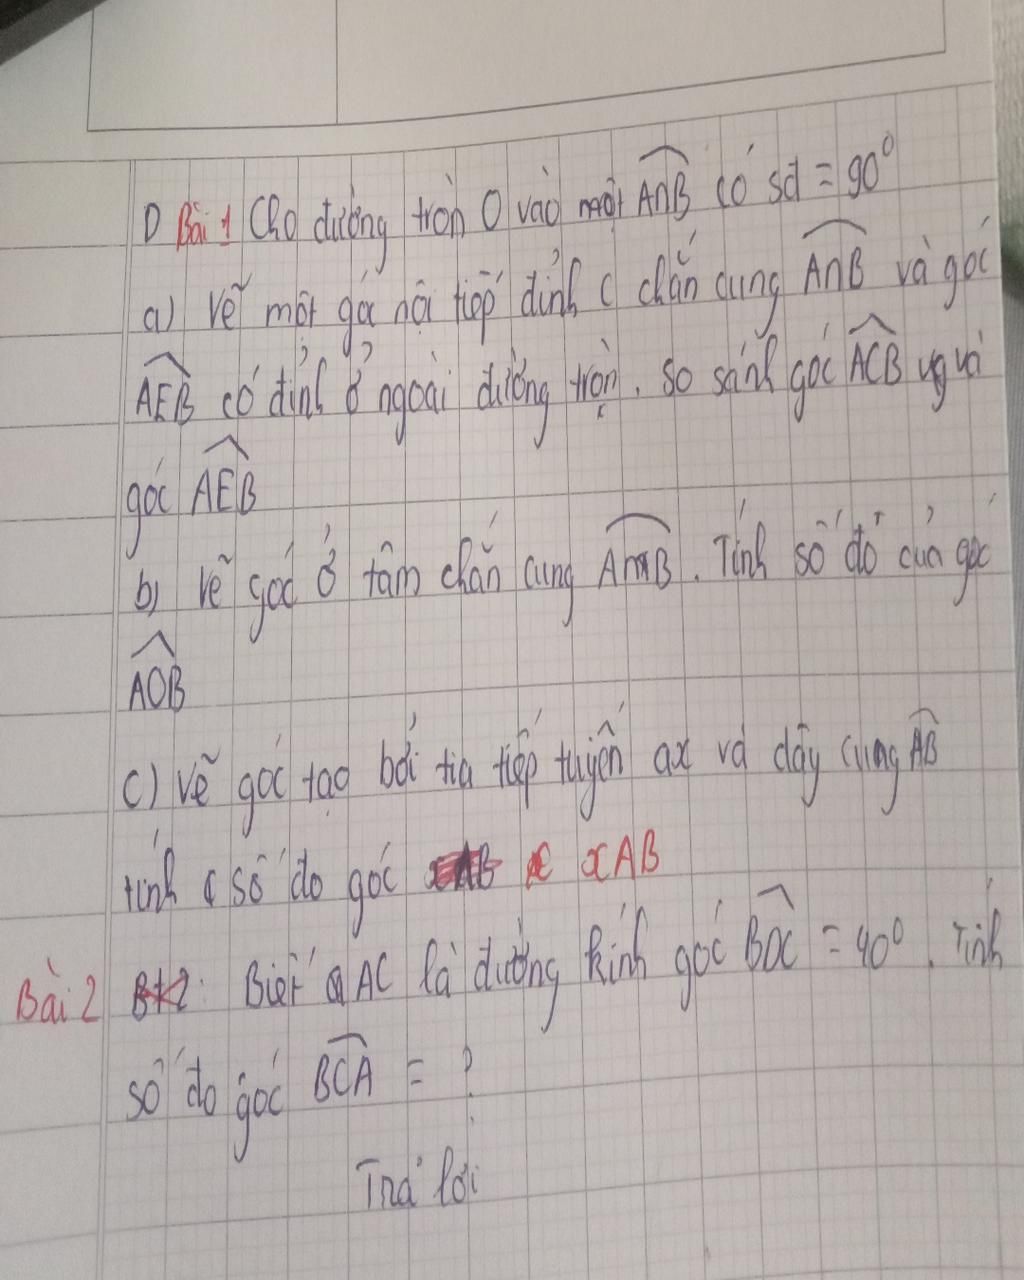 Bài 1 Cho đường tròn O vào một AnB có sđ = 90⁰
a) vẽ một góc nội tiếp đỉnh C chắn cung AnB và góc
AEB có đỉnh ở ngoài đường tròn. so sánh góc ACB với
góc AEB
b) vẽ góc ở tâm chắn cung AmB. Tính số đo của góc
AOB
c) vẽ góc tạo bởi tia tiếp tuyến ax và dây cung AB
tính số đo góc xAB
Bài 2 Biết AC là đường kính góc BOC = 40⁰. Tính
số đo góc BCA = ?
Trả lời